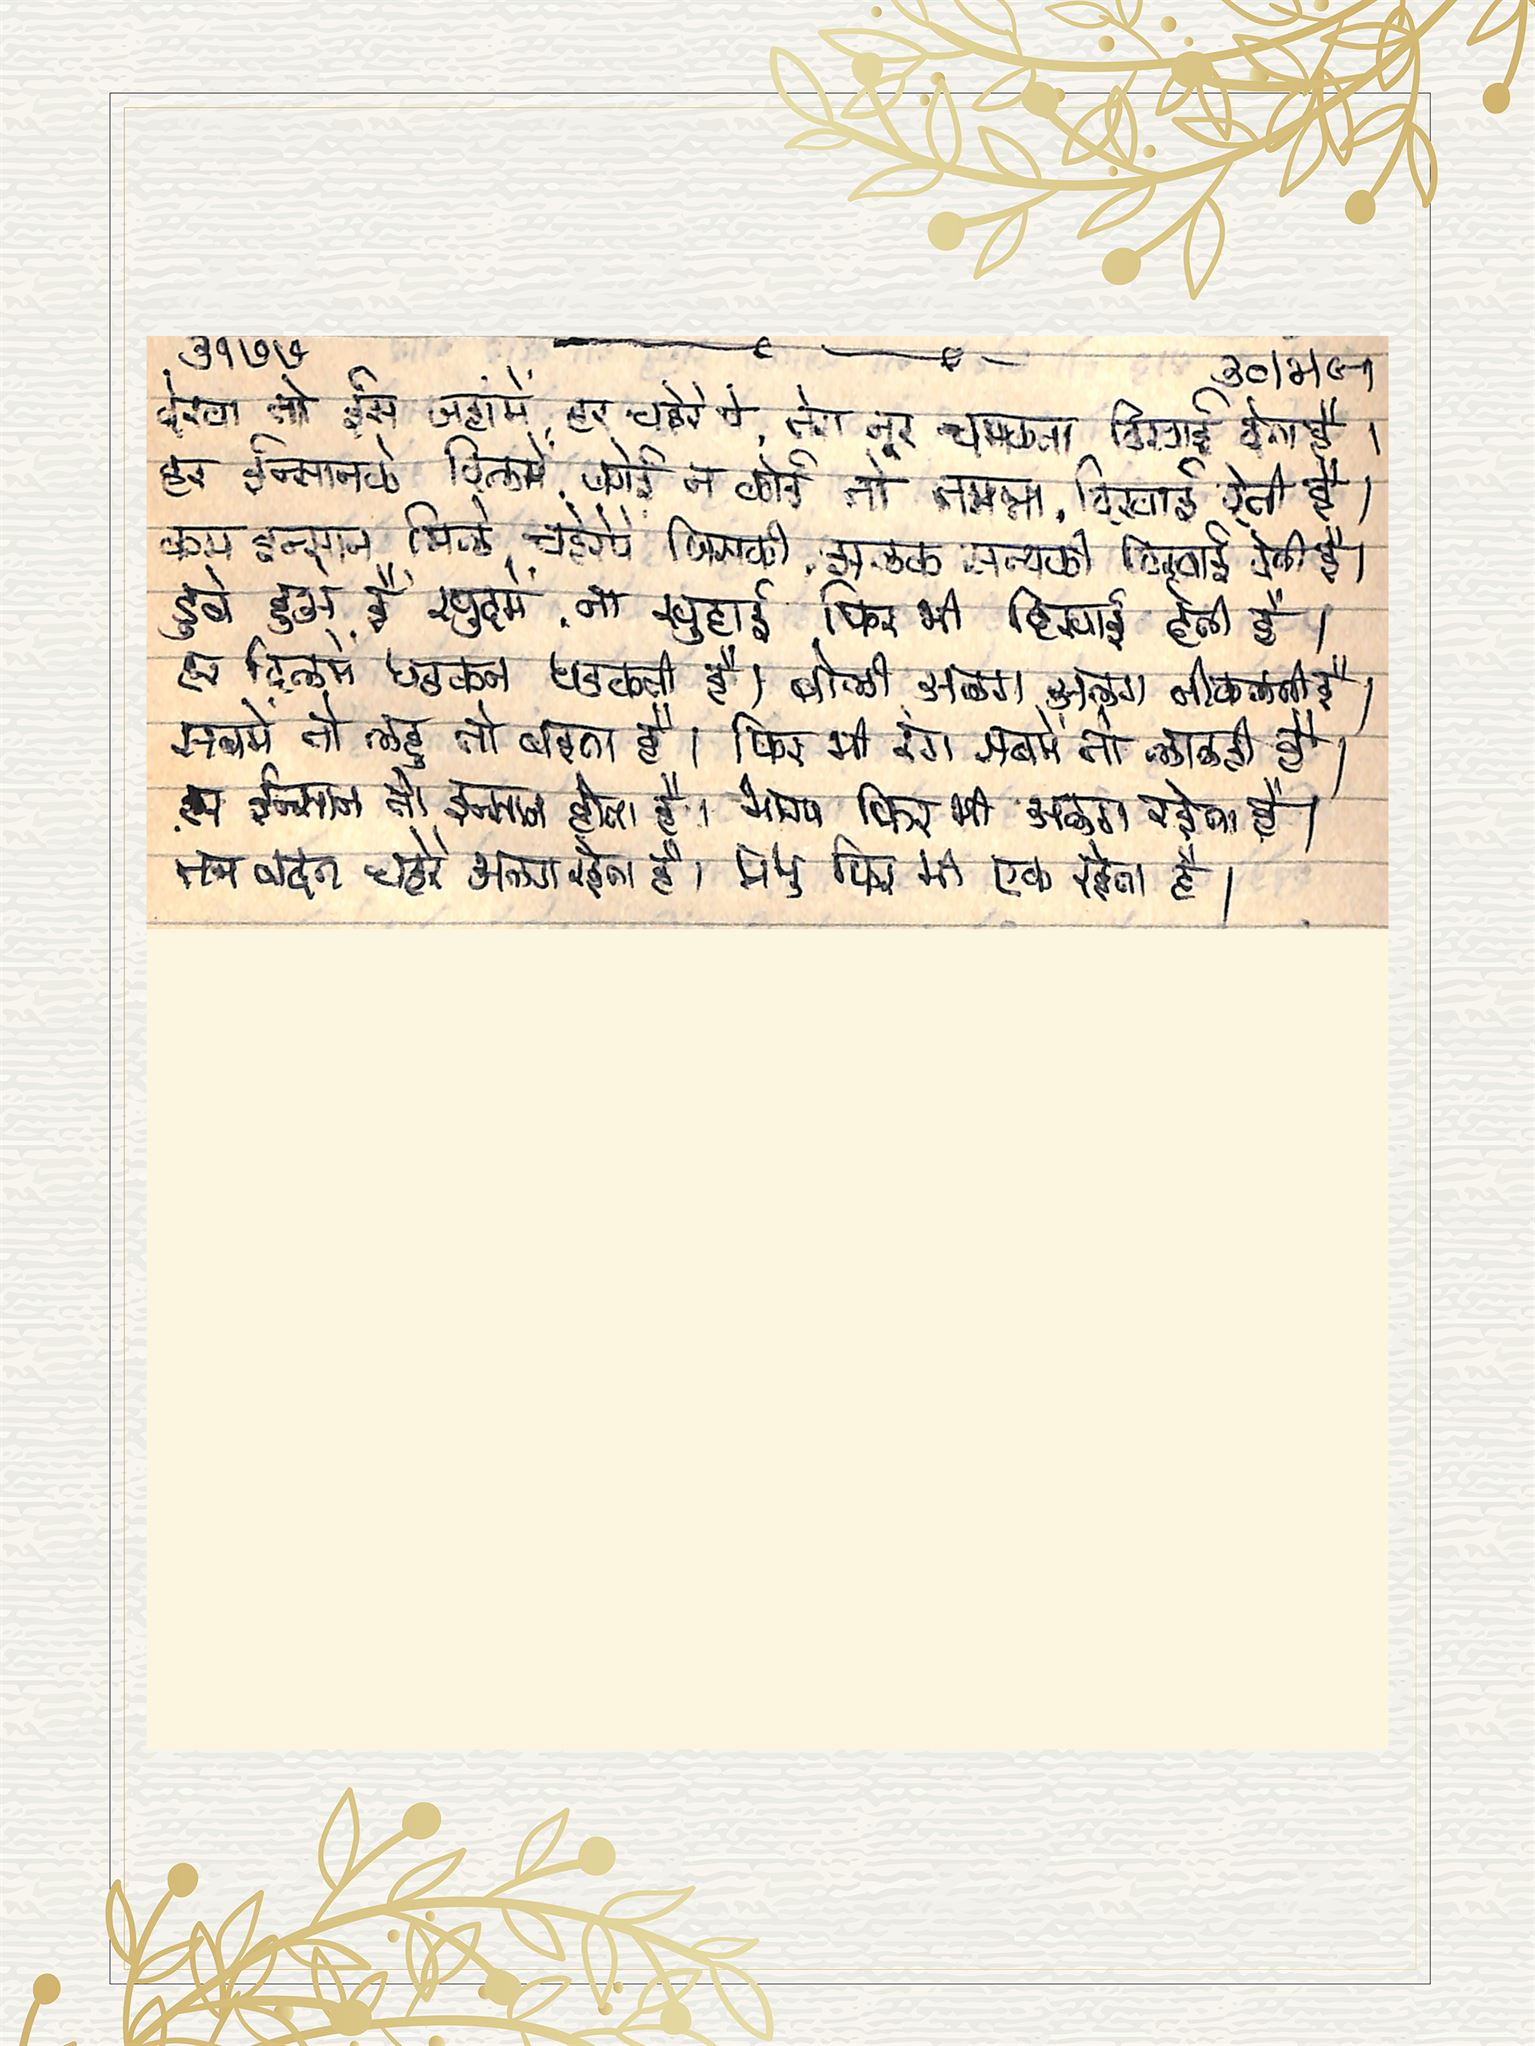 ३१७७
देखा तो ईस जहांमें, हर चहेरे पे, तेरा नूर चमकता दिखाई देता है ।
हर ईन्सानके दिलमें, कोई न कोई तो तमन्ना, दिखाई देती है ।
कम इन्सान मिले, चहेरेपे जिसकी, झलक सत्यकी दिखाई देती है ।
डुबे हुअे है खुदमें, ना खुदाई फिर भी दिखाई देती है ।
हर दिलमें धडकन धडकती है । बोली अलग अलग नीकलती है ।
सबमें तो लहु तो बहता है । फिर भी रंग सबमें तो लालही है ।
हर ईन्सान तो इन्सान होता है । भाग्य फिर भी अलग रहेता है ।
तन बदन चहेरे अलग रहेता है । प्रभु फिर भी एक रहेता है ।